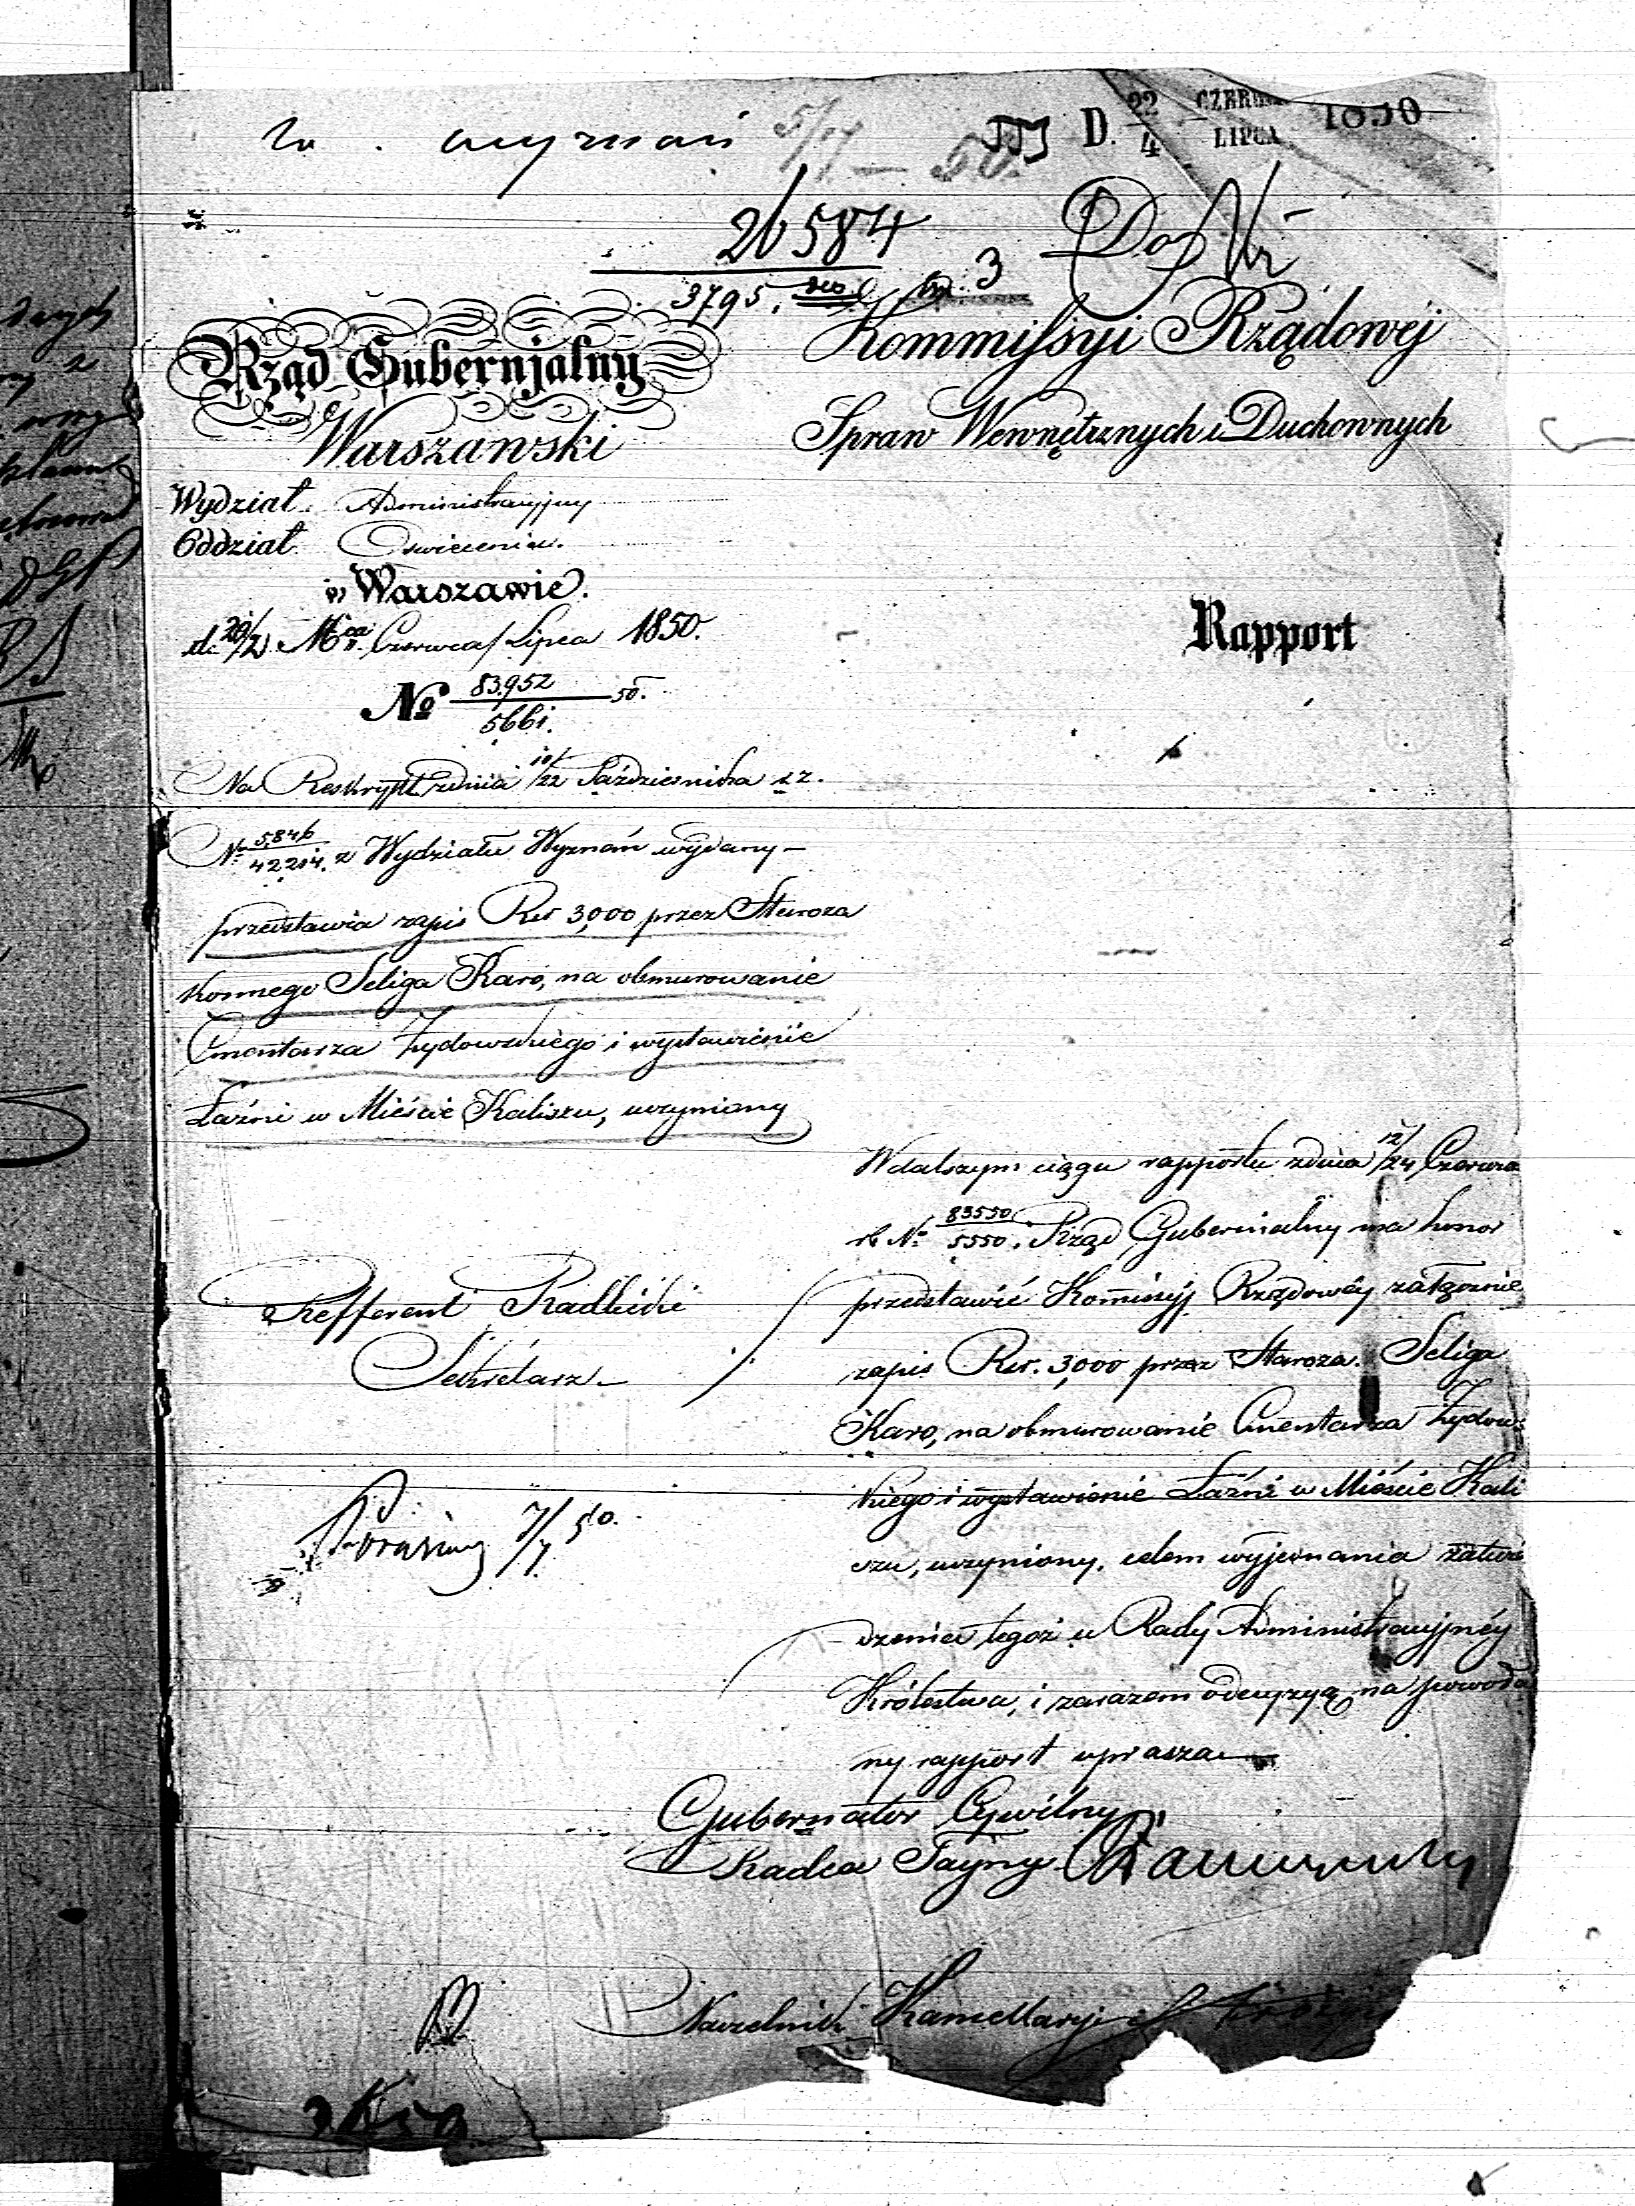 wyznań 5/7 — 50.
D. 22/4 CZERW LIPCA 1850
26584
3795.
3
Do
Kommissyi Rządowej
Spraw Wewnętrznych i Duchownych
Rząd Gubernjalny
Warszawski
Wydział Administracyjny
Oddział Oswiecenia.
w Warszawie.
d. 20/2 Mca Czerwca/Lipca 1850.
Rapport
No 83952/5661. 50.
Na Reskrypt zdnia 10/22 Października z. r.
No 5846/42214. z Wydziału Wyznań wydany —
przedstawia zapis Rsr 3,000 przez Staroza
konnego Seliga Karo, na obmurowanie
Cmentarza Żydowskiego i wystawienie
Łaźni w Mieście Kaliszu, uczyniony
Wdalszym ciągu rapportu zdnia 12/24 Czerwca
rb No 83550/5550. Rząd Gubernialny ma honor
przedstawić Kommissyj Rządowéy załącznie
zapis Rsr. 3,000 przez Staroza. Seliga
Karo, na obmurowanie Cmentarza Żydow=
skiego i wystawienie Łaźni w Mieście Kali
szu, uczyniony, celem wyjednania zatwier
dzenia tegoż u Rady Administracyjnéy
Królestwa, i zarazem o decyzyą na powoła
ny rapport uprasza —
Refferent Radlicki
Sekretarz —
7/7 50.
Gubernator Cywilny
Radca Tayny
Naczelnik Kancellaryi